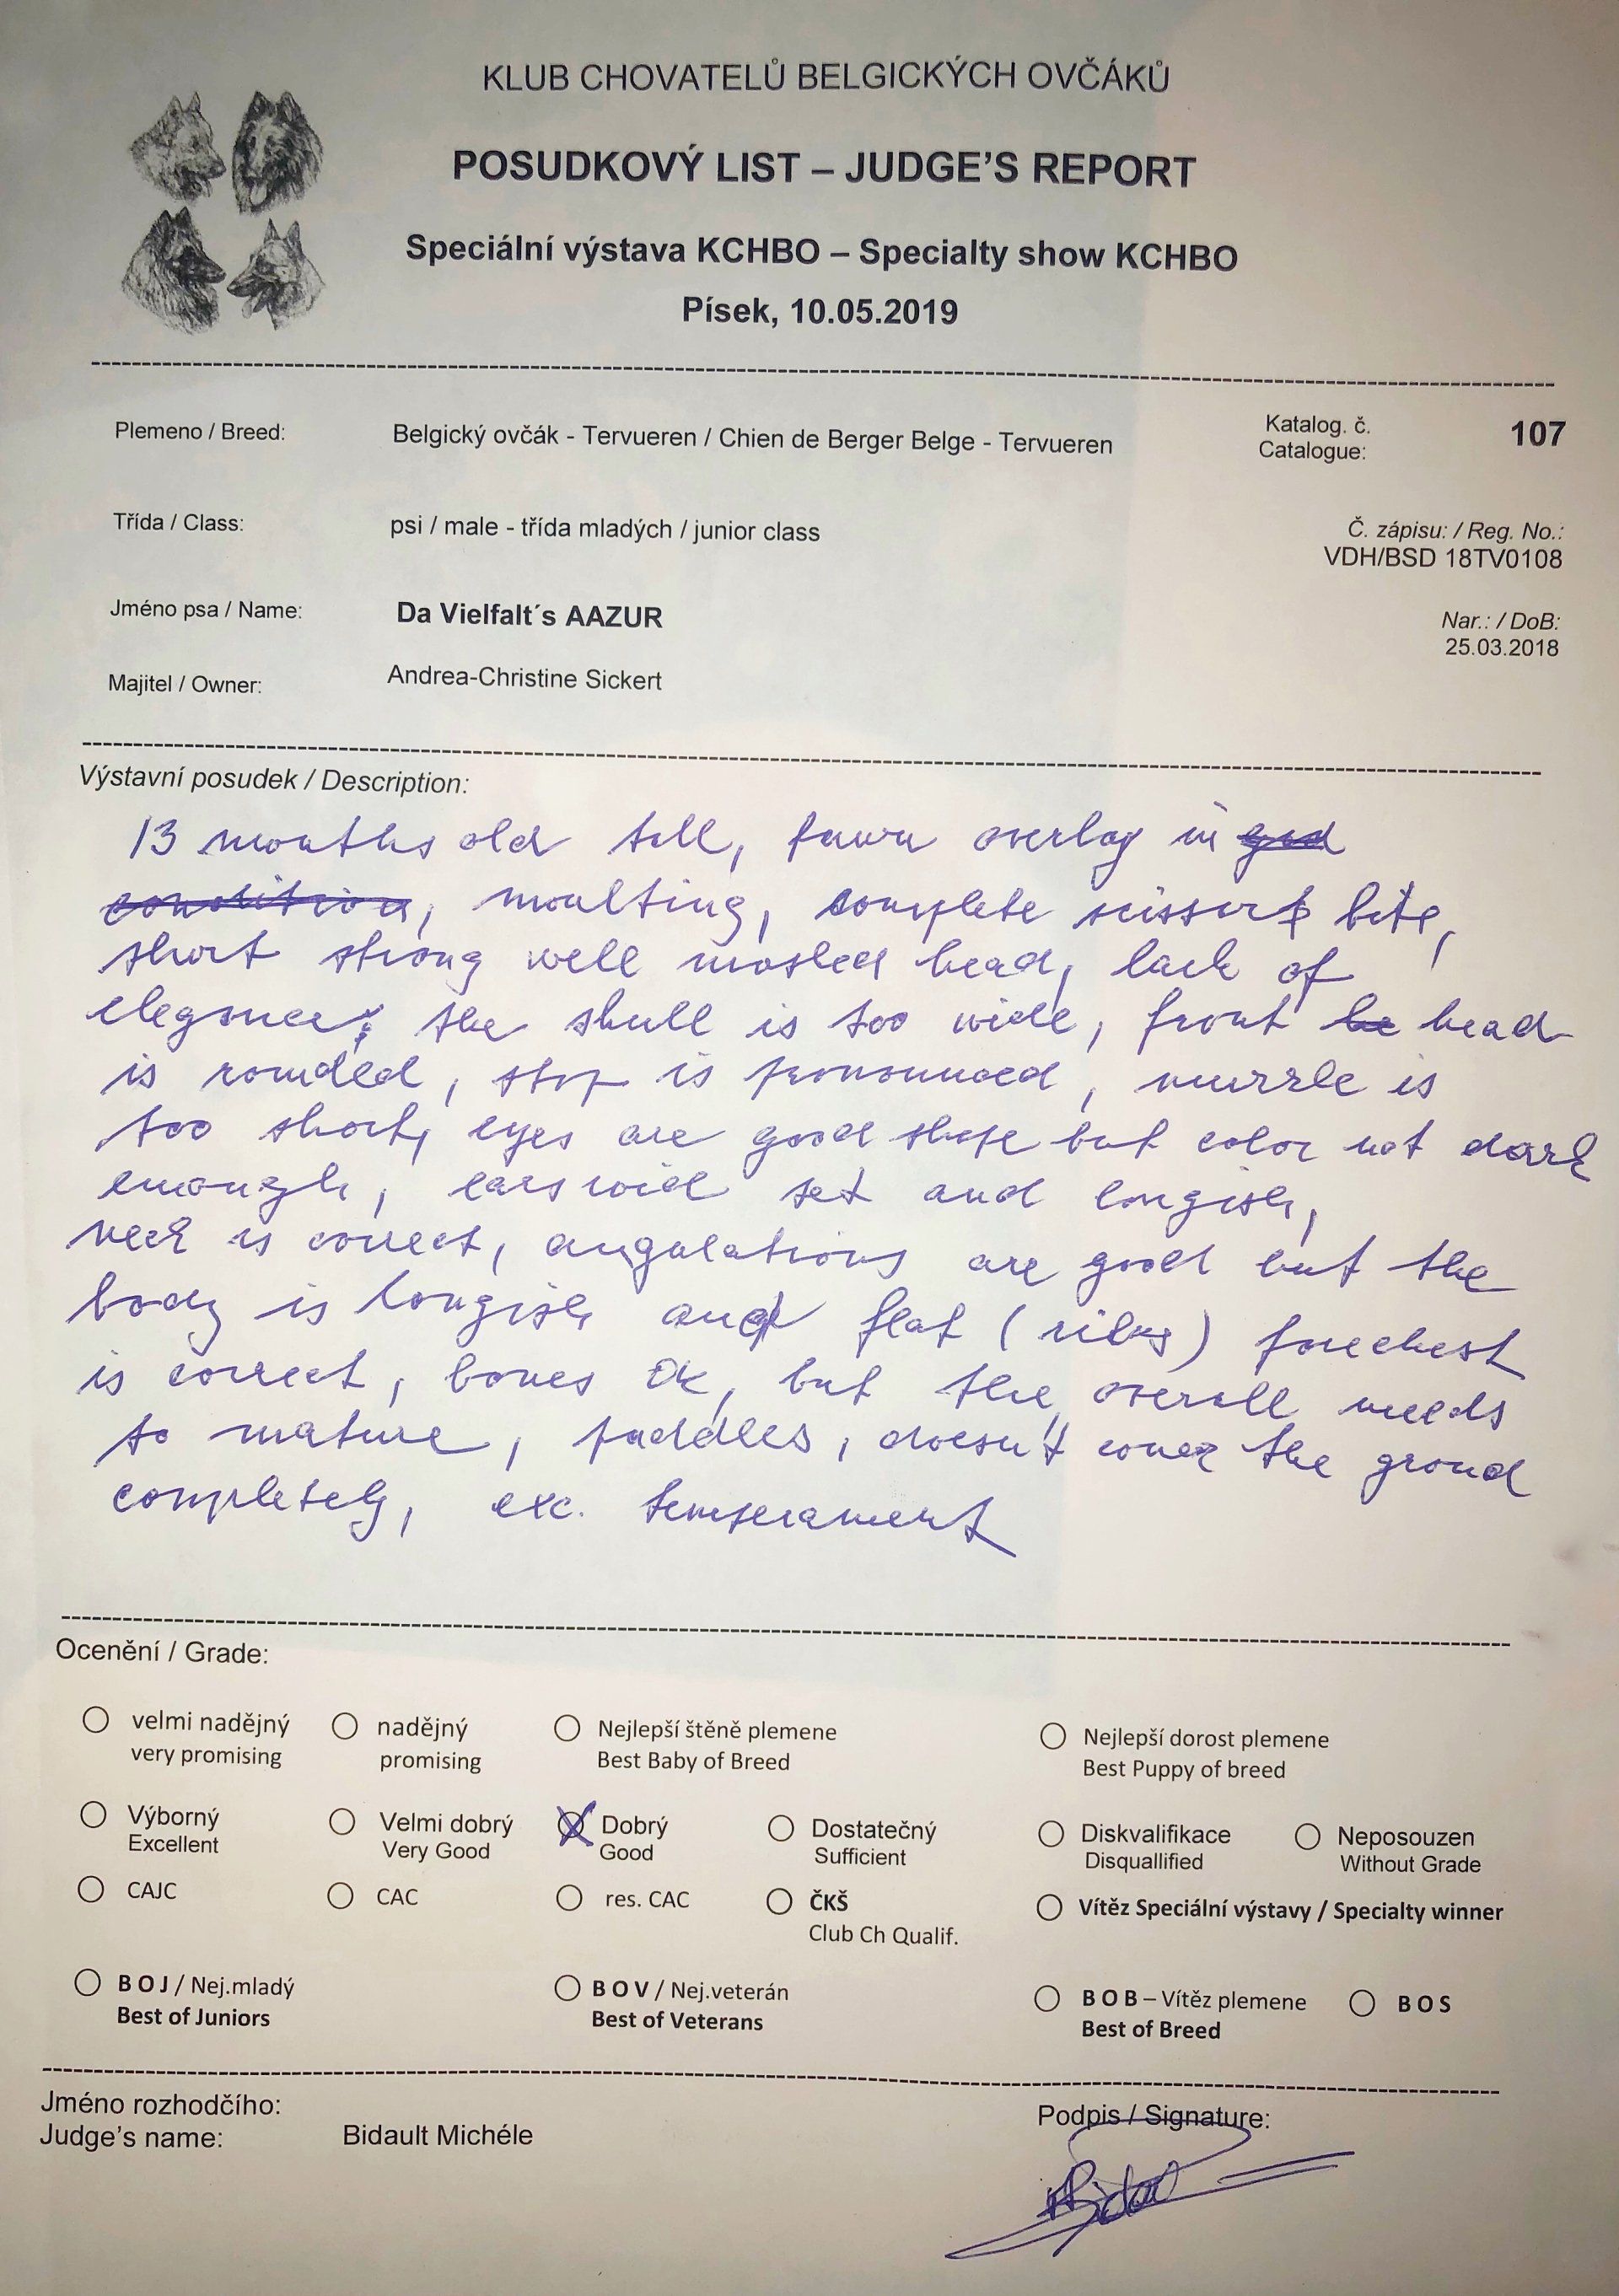 KLUB CHOVATELŮ BELGICKÝCH OVČÁKŮ
POSUDKOVÝ LIST – JUDGE'S REPORT
Speciální výstava KCHBO – Specialty show KCHBO
Písek, 10.05.2019
Plemeno / Breed: Belgický ovčák - Tervueren / Chien de Berger Belge - Tervueren
Katalog. č. 107
Catalogue:
Třída / Class: psi / male - třída mladých / junior class
Č. zápisu: / Reg. No.:
VDH/BSD 18TV0108
Jméno psa / Name: Da Vielfalt´s AAZUR
Nar.: / DoB:
25.03.2018
Majitel / Owner: Andrea-Christine Sickert
Výstavní posudek / Description:
13 months old tall, fawn overlay in god
condition, moulting, complete scissors bite,
short strong well masked head, lack of
elegance, the skull is too wide, front he head
is rounded, stop is pronounced, muzzle is
too short, eyes are good shape but color not dark
enough, ears wid set and longish,
neck is correct, angulations are good but the
body is longish and flat (ribs) forechest
is correct, bones ok, but the overall needs
to mature, paddles, doesn't cover the ground
completely, exc. temperament
Ocenění / Grade:
velmi nadějný nadějný Nejlepší štěně plemene Nejlepší dorost plemene
very promising promising Best Baby of Breed Best Puppy of breed
Výborný Velmi dobrý Dobrý Dostatečný Diskvalifikace Neposouzen
Excellent Very Good Good Sufficient Disquallified Without Grade
CAJC CAC res. CAC ČKŠ Vítěz Speciální výstavy / Specialty winner
Club Ch Qualif.
B O J / Nej.mladý B O V / Nej.veterán B O B – Vítěz plemene B O S
Best of Juniors Best of Veterans Best of Breed
Jméno rozhodčího: Podpis / Signature:
Judge's name: Bidault Michéle